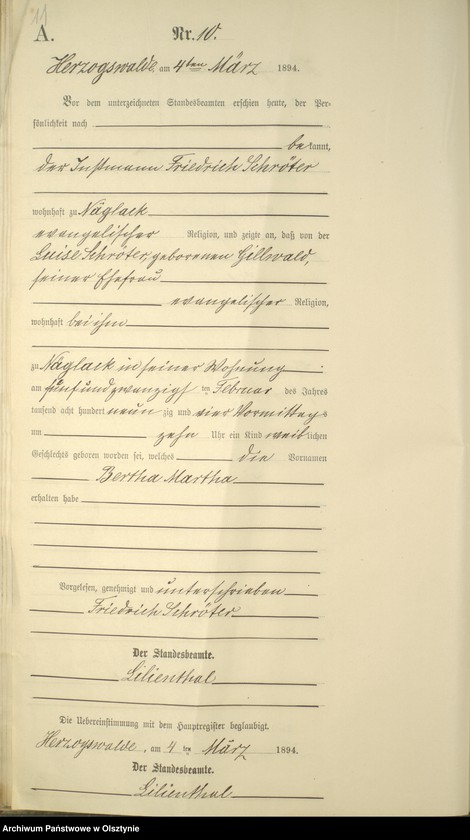 A. Nr. 10.
Herzogswalde am 4ten März 1894.
Vor dem unterzeichneten Standesbeamten erschien heute, der Per-
sönlichkeit nach
bekannt,
der Instmann Friedrich Schröter
wohnhaft zu Näglack
evangelischer Religion, und zeigte an, daß von der
Luise Schröter, geborenen Gillwald,
seiner Ehefrau
evangelischer Religion,
wohnhaft bei ihm
zu Näglack in seiner Wohnung
am fünfundzwanzigsten Februar des Jahres
tausend acht hundert neunzig und vier Vormittags
um zehn Uhr ein Kind weiblichen
Geschlechts geboren worden sei, welches die Vornamen
Bertha Martha
erhalten habe
Vorgelesen, genehmigt und unterschrieben
Friedrich Schröter
Der Standesbeamte.
Lilienthal
Die Uebereinstimmung mit dem Hauptregister beglaubigt.
Herzogswalde, am 4ten März 1894.
Der Standesbeamte.
Lilienthal
Archiwum Państwowe w Olsztynie